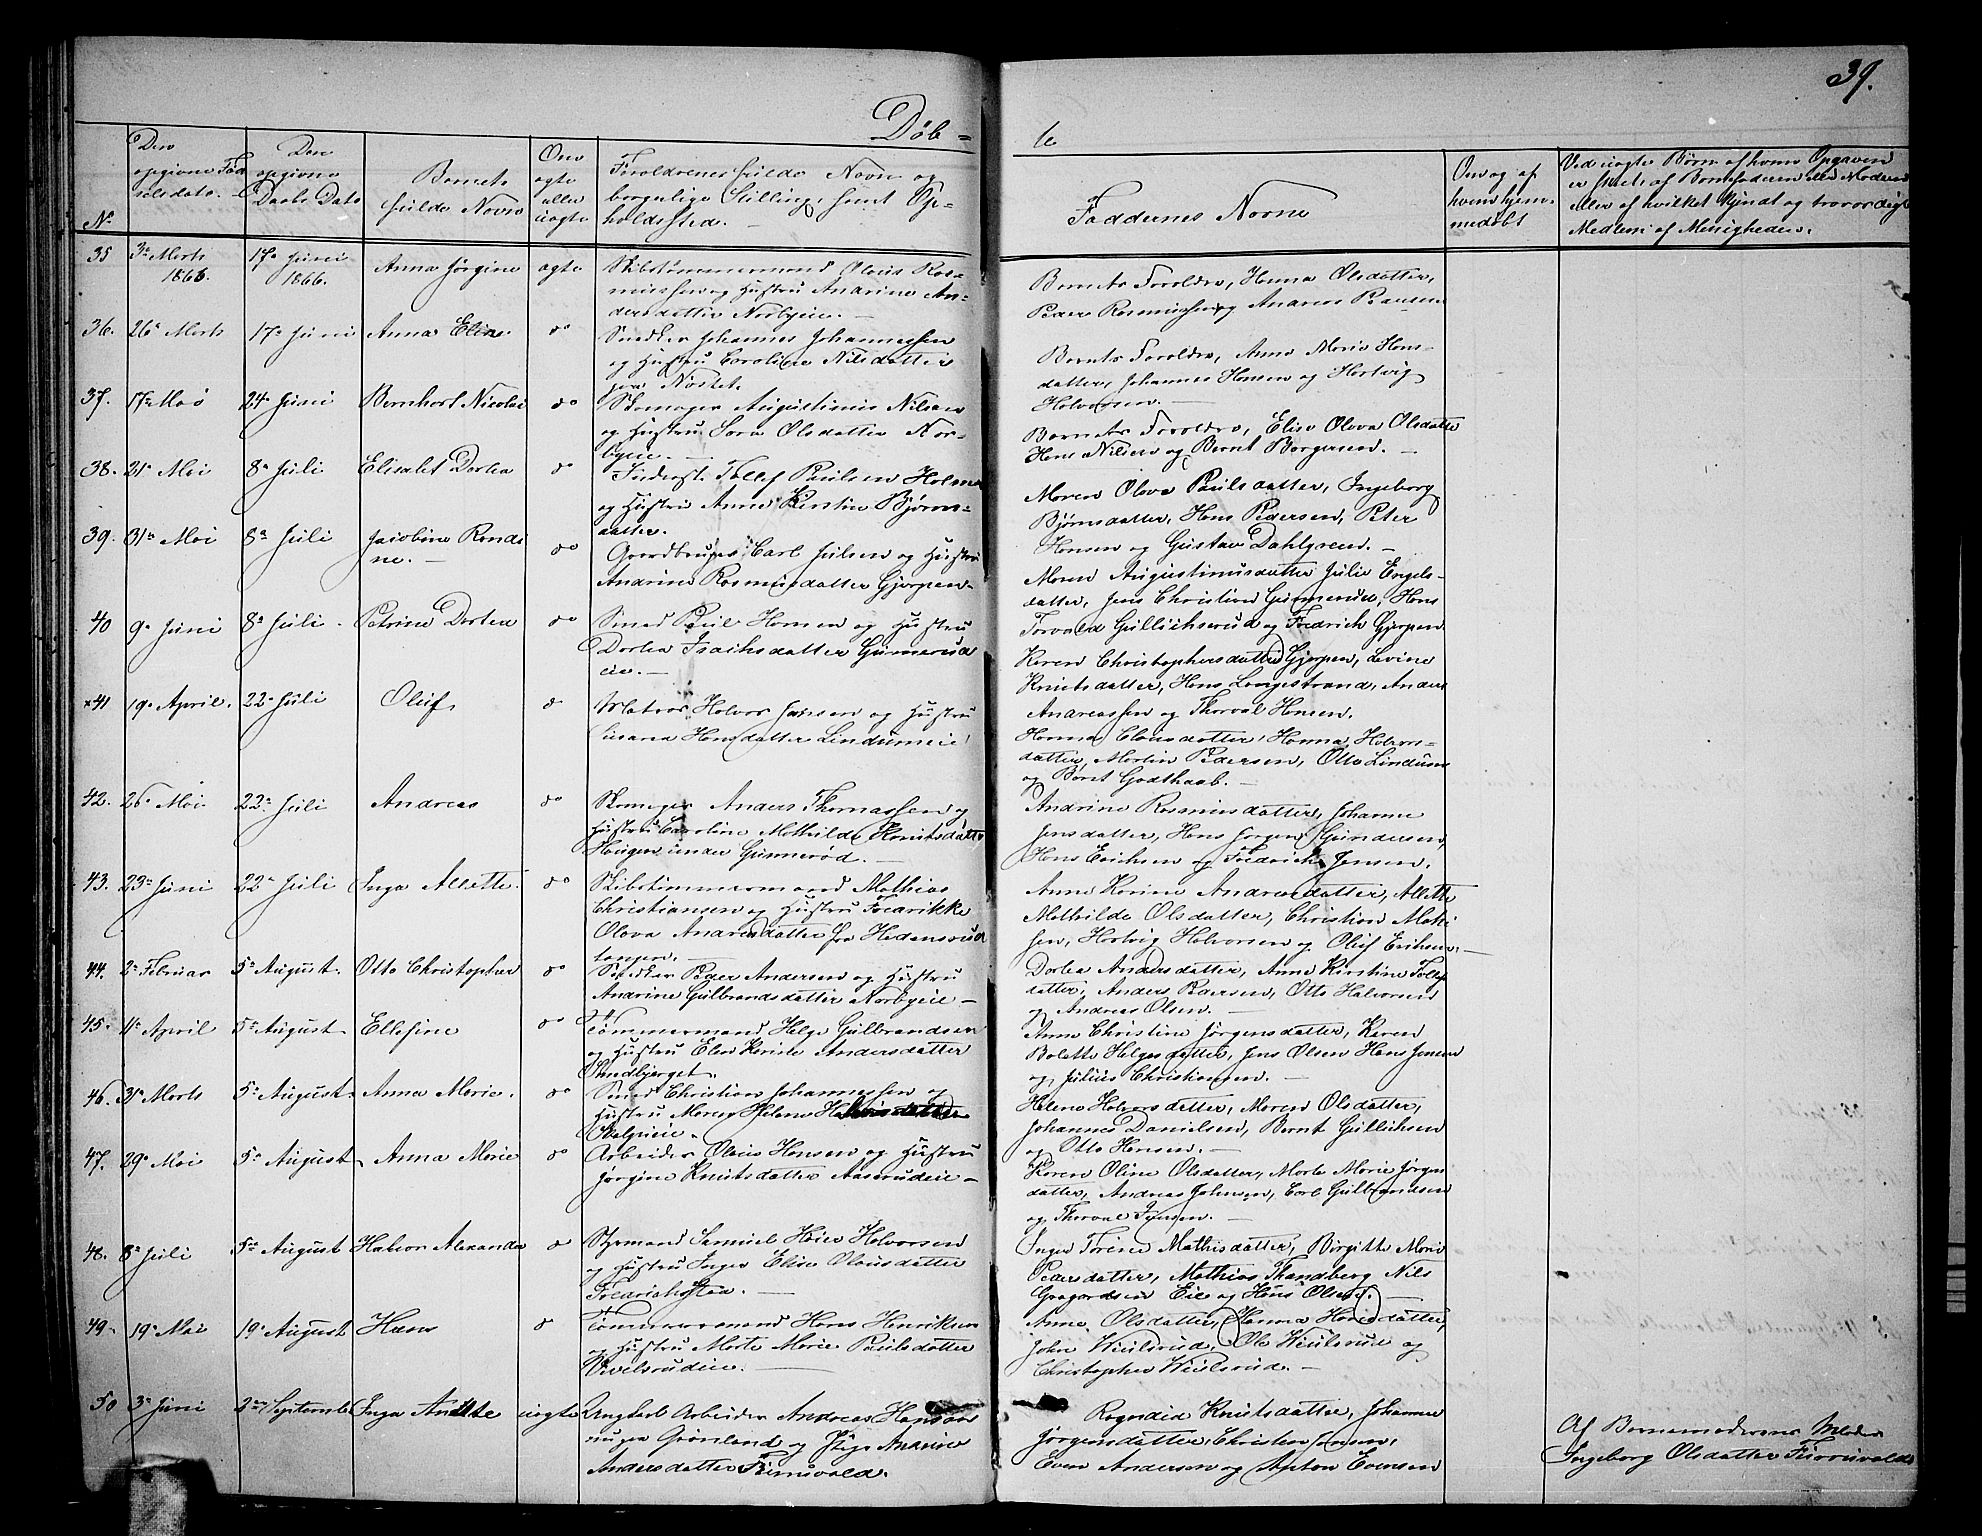 39.
Døb-
te
No
Den opgivne Fødselsdato.
Den opgivne Daabs Dato
Barnets fulde Navn
Om ægte eller uægte
Forældrenes fulde Navn og
borgerlige Stilling, samt Op-
holdssted.
Faddernes Navne
Om og af hvem hjem-
medøbt
Ved uægte Børn af hvem Opgaven
er skeet: af Barnefaderen eller Moderen
eller af hvilket kjendt og troværdigt
Medlem af Menigheden.
35 3 Marts 1866. 17 Juni 1866. Anna Jørgine ægte
Skibstømmermand Olaus Ras-
mussen og Hustru Andrine An-
dersdatter Norbyeie.
Barnets Forældre, Hanna Olsdatter,
Peder Rasmussen og Andreas Paulsen
36. 26 Marts 17 Juni Anna Elise do
Snedker Johannes Johannessen
og Hustru Caroline Nilsdatter
paa Nøstet.
Barnets Forældre, Anne Marie Hans-
datter, Johannes Hansen og Hartvig
Halvorsen.
37. 17 Mai 24 Juni Bernhart Nicolai do
Skomager Augustinus Nilsen
og Hustru Sara Olsdatter Nor-
byeie.
Barnets Forældre, Elise Olava Olsdatter
Hans Nilsen og Bernt Borgersen.
38. 21 Mai 8 Juli Elisabet Dortea do
Inderst Tollef Paulsen Holme
og Hustru Anne Kirstine Bjørns-
datter.
Maren Olava Paulsdatter, Ingeborg
Bjørnsdatter, Hans Pedersen, Peter
Hansen og Gustav Dahlgreen.
39. 31 Mai 8 Juli Jacobine Randi-
ne. do
Gaardbruger Carl Julsen og Hustru
Andrine Rasmusdatter Gjerpen
Maren Augustinusdatter Julie Engels-
datter, Jens Christian Gunnerud, Hans
Torvald Gullichsrud og Fredrich Gjerpen
40 9 Juni 8 Juli Petrine Dortea do
Smed Paul Hansen og Hustru
Dortea Isachsdatter Gunnerud
eie.
Karen Christophersdatter Gjerpen, Levine
Knutsdatter, Hans Langestrand, Anders
Andreassen og Thorval Hansen.
×41 19 April. 22 Juli Oluf do
Matros Halvor Jansen og Hustru
Susana Hansdatter Lindumeie
Hanna Clausdatter, Hanna Halvors-
datter, Martin Pedersen, Otto Lindum
og Bernt Godthaab.
42. 26 Mai 22 Juli Andreas do
Skomager Anders Thomassen og
Hustru Caroline Mathilde Knutsdatter
Haugen under Gunnerød.
Andrine Rasmusdatter, Johanne
Jensdatter, Hans Jørgen Gundersen,
Hans Erichsen og Fredrich Jensen.
43. 23 Juni 22 Juli Inga Alette. do
Skibstimmermand Mathias
Christiansen og Hustru Fredrikke
Olava Andreasdatter fra Hedensrud
tangen.
Anne Karine Andreasdatter, Alette
Mathilde Olsdatter, Christian Mathi
sen, Hartvig Halvorsen og Oluf Eriksen.
44. 2 Februar 5 August. Otto Christopher do
Snedker Peder Andersen og Hustru
Andrine Gulbrandsdatter Norbyeie
Dortea Andersdatter, Anne Kirstine Tollefs
datter, Anders Pedersen, Otto Halvorsen
og Andreas Olsen.
45. 11 April 5 August Ellefine do
Tømmermand Helge Gulbrandsen
og Hustru Elen Karine Andersdatter
Sandbjerget.
Anne Christine Jørgensdatter, Karen
Bolette Helgesdatter, Jens Olsen Hans Jensen
og Julius Christiansen.
46. 31 Marts 5 August Anna Marie. do
Smed Christian Johannessen og
Hustru Maren Helene Halvorsdatter
Hustru Maren Olsdatter,
Helene Halvorsdatter, Maren Olsdatter,
Johannes Danielsen, Bernt Gullichsen
og Otto Hansen.
47. 29 Mai 5 August Anna Marie do
Arbeider Olaus Hansen og Hustru
Jørgine Knutsdatter Aaserudeie
Karen Oline Olsdatter, Marte Marie Jørgens
datter, Andreas Johnsen, Carl Gulbrandsen
og Thorval Jensen.
48. 8 Juli 5 August Halvor Alexander do
Styrmand Samuel Høier Halvorsen
og Hustru Inger Elise Olausdatter
Fredrichstad.
Inger Torine Mathisdatter, Birgitte Marie
Pedersdatter, Mathias Strandberg Nils
Gregersen Eie og Hans Olsen.
49. 19 Mai 19 August Hans do
Tømmermand Hans Henriksen
og Hustru Marte Marie Paulsdatter
Wivelsrudeie.
Anne Olsdatter, Hanna Hansdatter,
John Wivelsrud, Ole Wivelsrud og
Christopher Wivelsrud.
50 3 Juni 2 September Inga Anette uægte
Ungkarl Arbeider Andreas Hansen
paa Grønland og Pige Anarine
Andersdatter Fursvald.
Ragndid Knutsdatter, Johanne
Jørgensdatter, Christen Jensen,
Even Andersen og Anton Evensen
Af Barnemoderens Moder
Ingeborg Olsdatter Fursvald